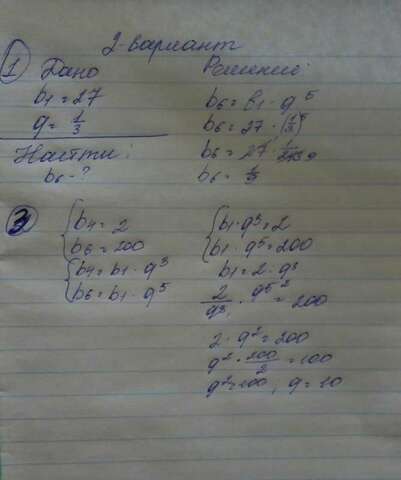 2-вариант
1 Дано
b1 = 27
q = 1/3
Найти:
b6 - ?
Решение:
b6 = b1 · q^5
b6 = 27 · (1/3)^5
b6 = 27 · 1/243 9
b6 = 1/9
3
{b4 = 2
b6 = 200
{b4 = b1 · q^3
b6 = b1 · q^5
{b1 · q^3 = 2
b1 · q^5 = 200
b1 = 2 · q^3
2/q^3 · q^5 ^2 = 200
2 · q^2 = 200
q^2 · 200/2 = 100
q^2 = 100, q = 10